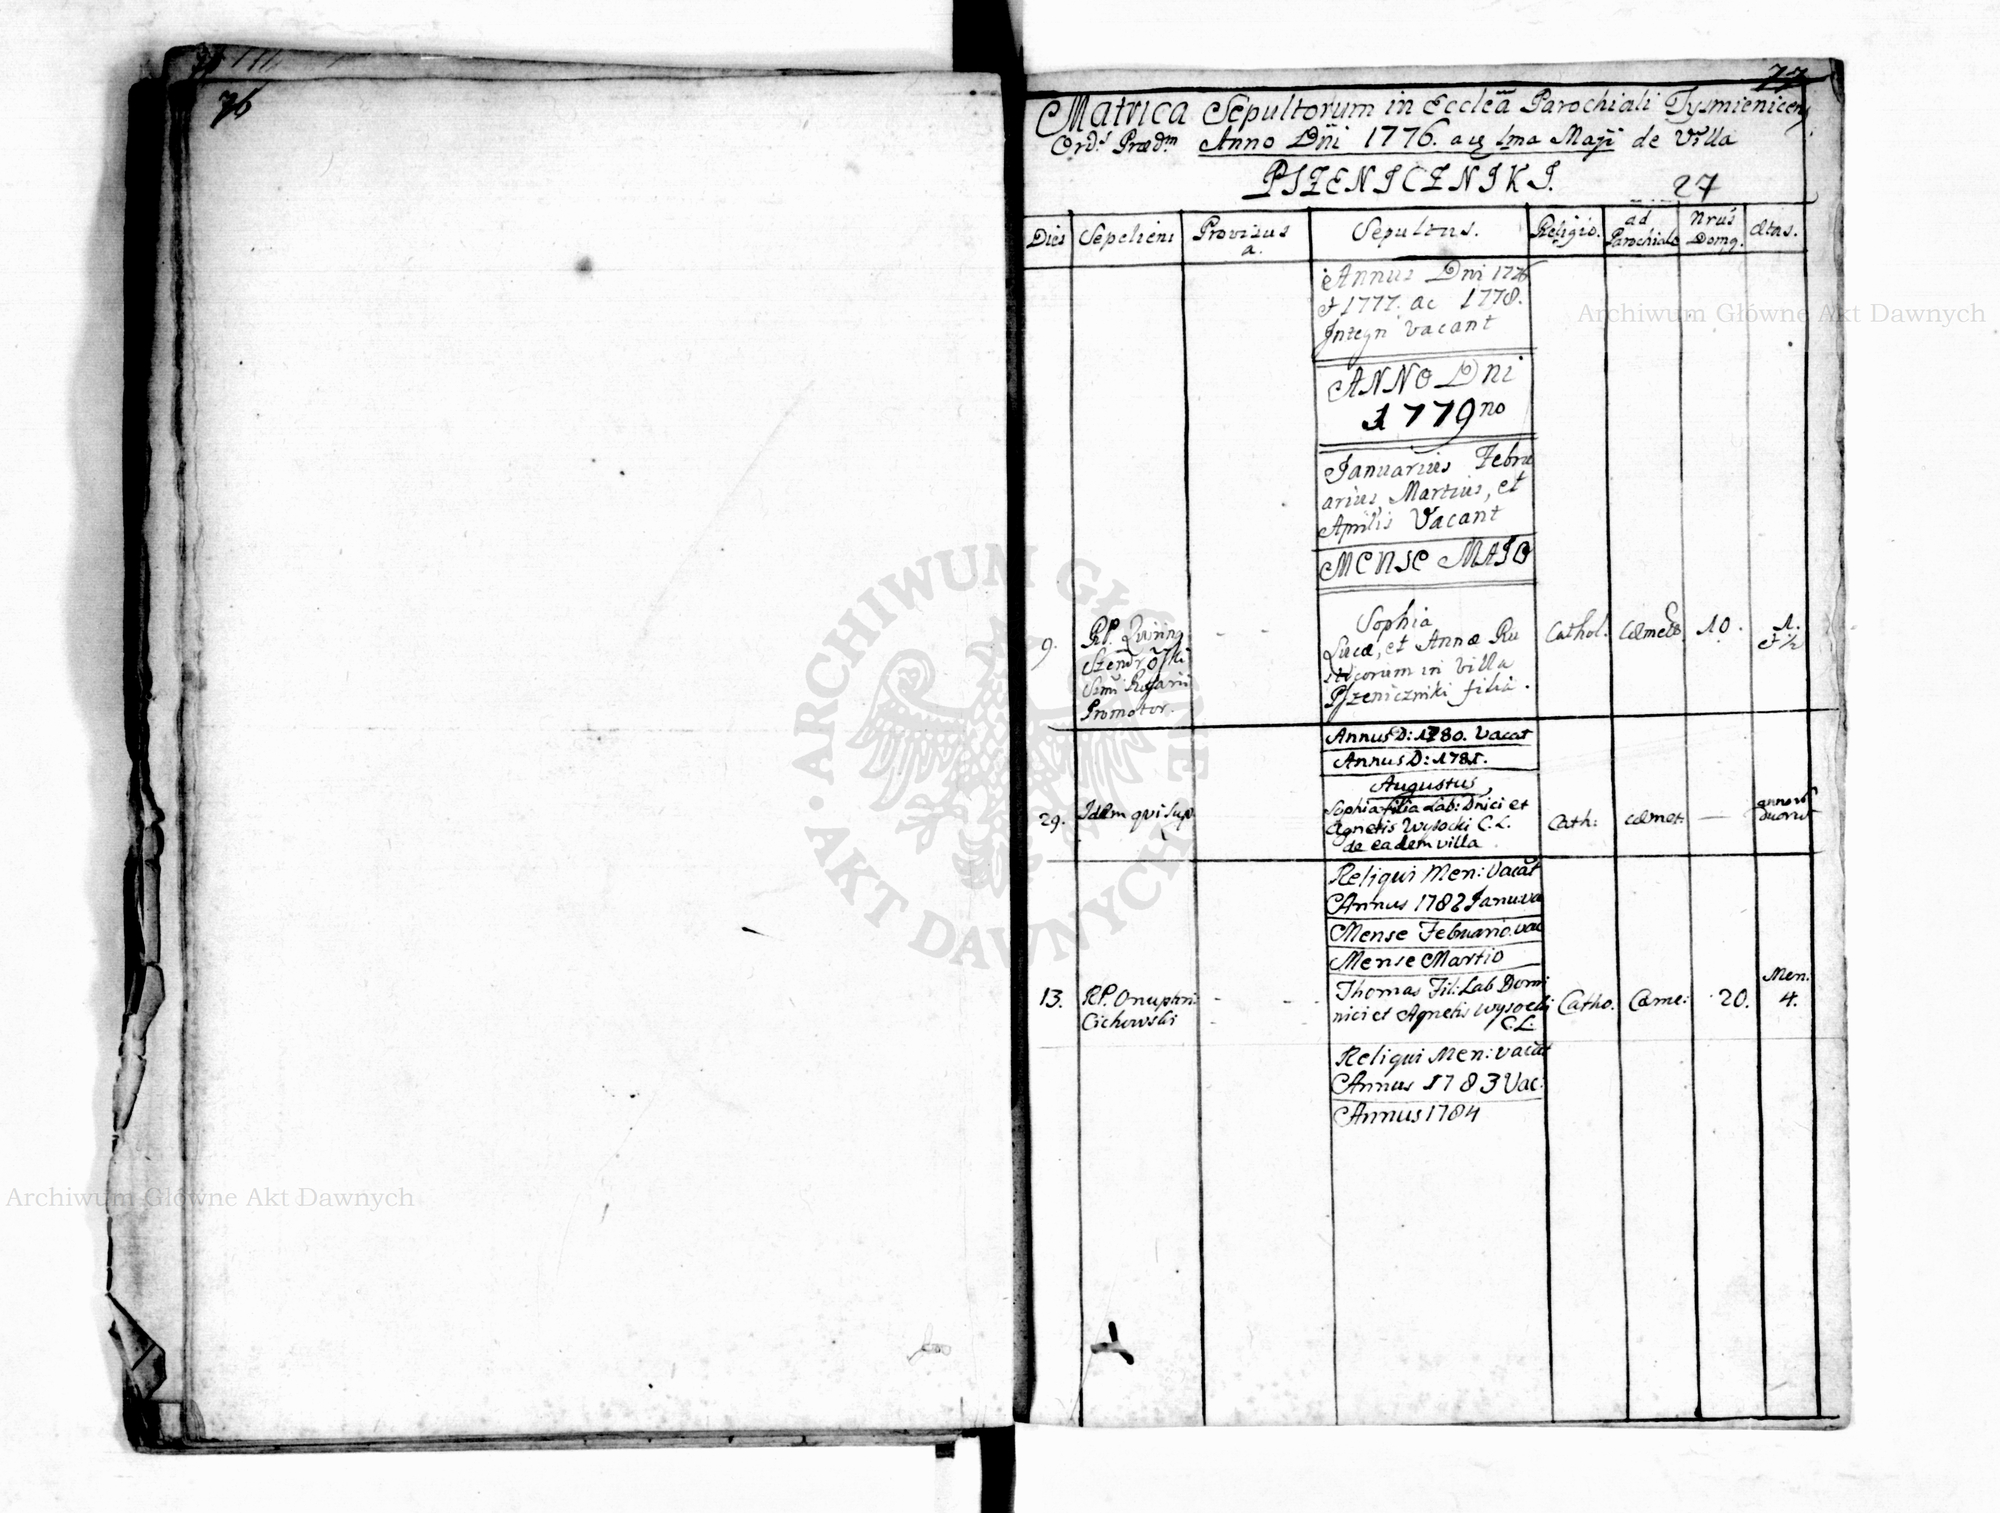 76
77
Matrica Sepultorum in Ecclea Parochiali Tysmienicens
Ord.s Præd.m Anno Dñi 1776. a 1ma Maji de Villa
PSZENICZNIKI.
27
Dies Sepeliens Provisus a. Sepultus. Religio. ad Parochiale Nrus Domq. Ætas.
Annus Dni 1776
et 1777. ac 1778.
Integri vacant
ANNO Dni
1779no
Januarius Febru
arius Martius, et
Aprilis Vacant
MENSE MAIO
9.
RP. Quirinq
Szendroski
Smi Rosarii
Promotor.
Sophia
Lucæ, et Annæ Ru
sticorum in villa
Pszeniczniki filia.
Cathol. Cæmete 10. 1. et ½
Annus D: 1780. Vacat
Annus D: 1781.
Augustus
29. Idem qui sup.
Sophia filia Lab: Dnici et
Agnetis Wysocki C. L.
de eadem villa
Cath: cæmet. — annorū
duorū
Reliqui Men: Vacāt
Annus 1782 Janu: va
Mense Februario. vac
Mense Martio
13. RP. Onuphri:
Cichowski
Thomas Fil: Lab Domi
nici et Agnetis Wysocki
C. L.
Catho. Cæme: 20. Men:
4.
Reliqui Men: vacāt
Annus 1783 Vac:
Annus 1784
Archiwum Główne Akt Dawnych
Archiwum Główne Akt Dawnych
ARCHIWUM GŁÓWNE AKT DAWNYCH